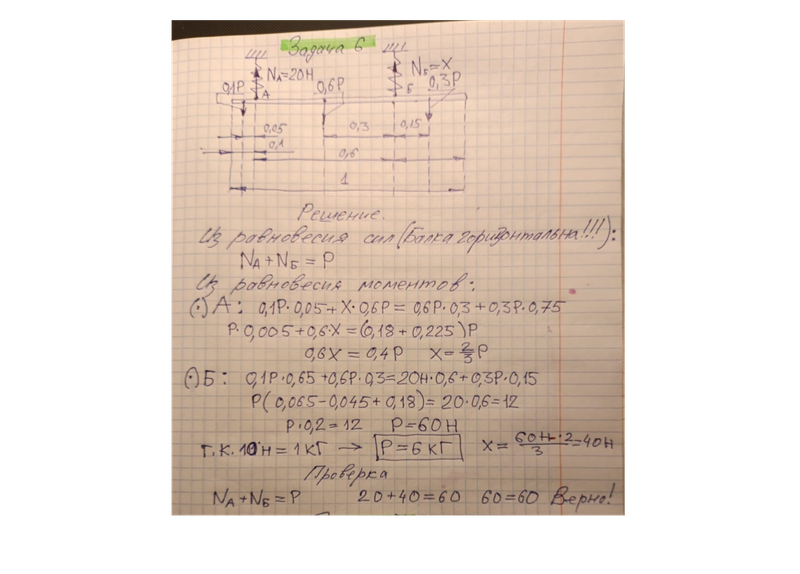 Задача 6
0,1P NA=20Н 0,6P NБ=X 0,3P
A Б
0,05 0,3 0,15
0,1 0,6
1
Решение.
Из равновесия сил (Балка горизонтальна!!!):
NA+NБ=P
Из равновесия моментов:
(·)A: 0,1P·0,05+X·0,6P=0,6P·0,3+0,3P·0,75
P·0,005+0,6·X=(0,18+0,225)P
0,6X=0,4P X=2/3P
(·)Б: 0,1P·0,65+0,6P·0,3=20Н·0,6+0,3P·0,15
P(0,065-0,045+0,18)=20·0,6=12
P·0,2=12 P=60Н
Т.К. 10Н=1КГ → P=6КГ X=60Н·2/3=40Н
Проверка
NA+NБ=P 20+40=60 60=60 Верно!